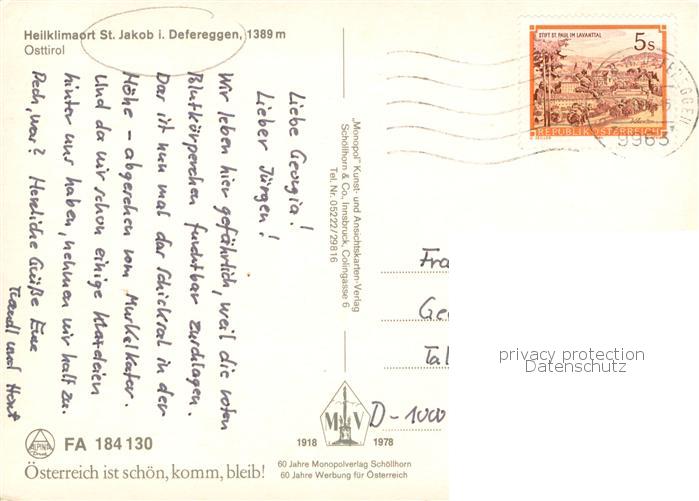 Heilklimaort St. Jakob i. Defereggen, 1389 m
Osttirol
Liebe Georgia!
Lieber Jürgen!
Wir leben hier gefährlich, weil die roten
Blutkörperchen furchtbar zuschlagen.
Das ist nun mal das Schicksal in der
Höhe – abgesehen vom Muskelkater.
Und da wir schon einige
hinter uns haben, nehmen wir halt zu.
Pech, was? Herzliche Grüße Eure
Traudl und Horst
"Monopol" Kunst- und Ansichtskarten-Verlag
Schöllhorn & Co., Innsbruck, Colingasse 6
Tel. Nr. 05222/29816
STIFT ST. PAUL IM LAVANTTAL
5 S
REPUBLIK ÖSTERREICH
9963
Fra
Ge
Tal
D-1000
privacy protection
Datenschutz
M V
1918 1978
60 Jahre Monopolverlag Schöllhorn
60 Jahre Werbung für Österreich
ALPINA
Druck
FA 184 130
Österreich ist schön, komm, bleib!